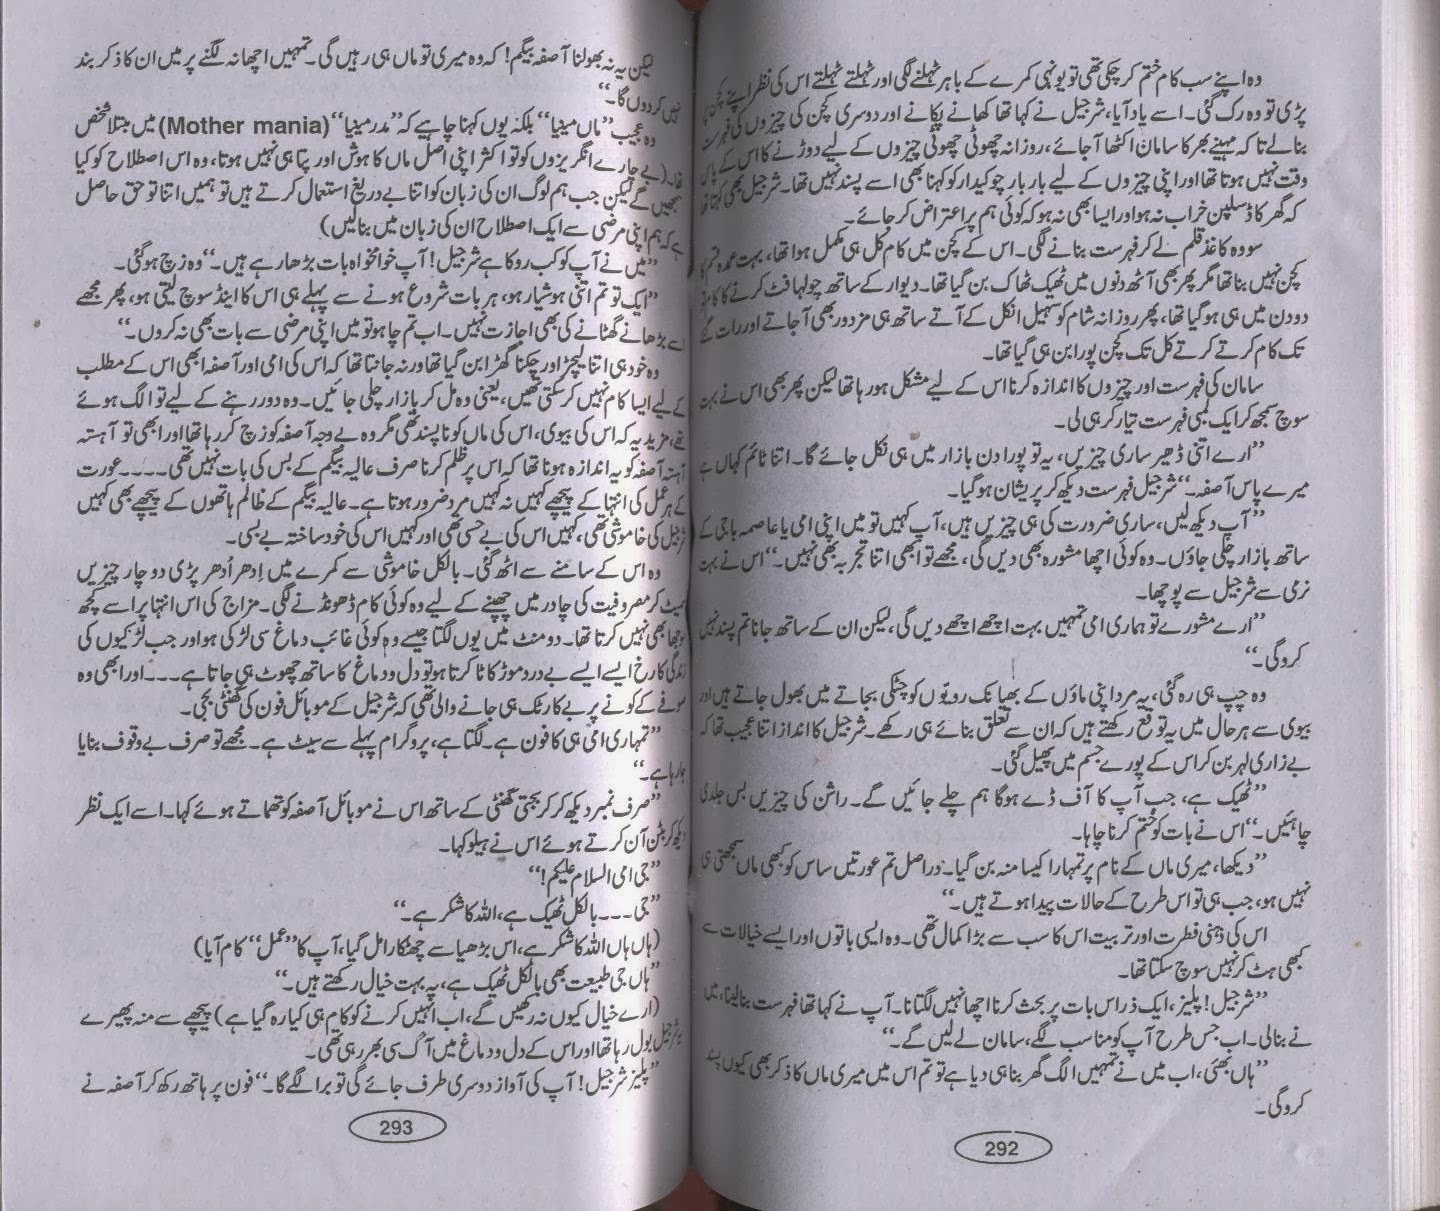 وہ اپنے سب کام ختم کر چکی تھی تو یونہی کمرے کے باہر ٹہلنے لگی اور ٹہلتے ٹہلتے اس کی نظر اپنے کچن پر
پڑی تو وہ رک گئی۔ اسے یاد آیا، شرجیل نے کہا تھا کھانے پکانے اور دوسری کچن کی چیزوں کی فہرست
بنالے تاکہ مہینے بھر کا سامان اکٹھا آجائے، روزانہ چھوٹی چھوٹی چیزوں کے لیے دوڑنے کا اس کے پاس
وقت نہیں ہوتا تھا اور اپنی چیزوں کے لیے بار بار چوکیدار کو کہنا بھی اسے پسند نہیں تھا۔ شرجیل بھی کہتا تھا
کہ گھر کا ڈسپلن خراب نہ ہو اور ایسا بھی نہ ہو کہ کوئی ہم پر اعتراض کر جائے۔
سو وہ کاغذ قلم لے کر فہرست بنانے لگی۔ اس کے کچن میں کام کل ہی مکمل ہوا تھا، بہت عمدہ قسم کا
کچن نہیں بنا تھا مگر پھر بھی آٹھ دنوں میں ٹھیک ٹھاک بن گیا تھا۔ دیوار کے ساتھ چولہا فٹ کرنے کا کام تو
دو دن میں ہی ہو گیا تھا، پھر روزانہ شام کو سہیل انکل کے آتے ساتھ ہی مزدور بھی آجاتے اور رات گئے
تک کام کرتے کرتے کل تک کچن پورا بن ہی گیا تھا۔
سامان کی فہرست اور چیزوں کا اندازہ کرنا اس کے لیے مشکل ہو رہا تھا لیکن پھر بھی اس نے بہت
سوچ سمجھ کر ایک لمبی فہرست تیار کر ہی لی۔
”ارے اتنی ڈھیر ساری چیزیں، یہ تو پورا دن بازار میں ہی نکل جائے گا۔ اتنا ٹائم کہاں ہے
میرے پاس آصفہ۔“ شرجیل فہرست دیکھ کر پریشان ہو گیا۔
”آپ دیکھ لیں، ساری ضرورت کی ہی چیزیں ہیں، آپ کہیں تو میں اپنی امی یا عاصمہ باجی کے
ساتھ بازار چلی جاؤں۔ وہ کوئی اچھا مشورہ بھی دیں گی، مجھے تو ابھی اتنا تجربہ بھی نہیں۔“ اس نے بہت
نرمی سے شرجیل سے پوچھا۔
”ارے مشورے تو ہماری امی تمہیں بہت اچھے اچھے دیں گی، لیکن ان کے ساتھ جانا تم پسند نہیں
کرو گی۔“
وہ چپ ہی رہ گئی، یہ مرد اپنی ماؤں کے بھیانک رویّوں کو چٹکی بجاتے میں بھول جاتے ہیں اور
بیوی سے ہر حال میں یہ توقع رکھتے ہیں کہ ان سے تعلق بنائے ہی رکھے۔ شرجیل کا انداز اتنا عجیب تھا کہ
بے زاری لہر بن کر اس کے پورے جسم میں پھیل گئی۔
”ٹھیک ہے، جب آپ کا آف ڈے ہوگا ہم چلے جائیں گے۔ راشن کی چیزیں بس جلدی
چاہئیں۔“ اس نے بات کو ختم کرنا چاہا۔
”دیکھا، میری ماں کے نام پر تمہارا کیسا منہ بن گیا۔ دراصل تم عورتیں ساس کو کبھی ماں سمجھتی ہی
نہیں ہو، جب ہی تو اس طرح کے حالات پیدا ہوتے ہیں۔“
اس کی ذہنی فطرت اور تربیت اس کا سب سے بڑا کمال تھی۔ وہ ایسی باتوں اور ایسے خیالات سے
کبھی ہٹ کر نہیں سوچ سکتا تھا۔
”شرجیل! پلیز، ایک ذرا سی بات پر بحث کرنا اچھا نہیں لگتا نا۔ آپ نے کہا تھا فہرست بنا لینا، میں
نے بنالی۔ اب جس طرح آپ کو مناسب لگے، سامان لے لیں گے۔“
”ہاں بھئی، اب میں نے تمہیں الگ گھر بنا ہی دیا ہے تو تم اس میں میری ماں کا ذکر بھی کیوں پسند
کرو گی۔
292
لیکن یہ نہ بھولنا آصفہ بیگم! کہ وہ میری تو ماں ہی رہیں گی۔ تمہیں اچھا نہ لگنے پر میں ان کا ذکر بند
نہیں کر دوں گا۔“
وہ عجیب ”ماں مینیا“ بلکہ یوں کہنا چاہیے کہ ”مدر مینیا“ (Mother mania) میں مبتلا شخص
تھا۔ (بے چارے انگریزوں کو تو اکثر اپنی اصل ماں کا ہوش اور پتا ہی نہیں ہوتا، وہ اس اصطلاح کو کیا
سمجھیں گے لیکن جب ہم لوگ ان کی زبان کو اتنا بے دریغ استعمال کرتے ہیں تو ہمیں اتنا تو حق حاصل
ہے کہ ہم اپنی مرضی سے ایک اصطلاح ان کی زبان میں بنا لیں)
”میں نے آپ کو کب روکا ہے شرجیل! آپ خوامخواہ بات بڑھا رہے ہیں۔“ وہ زچ ہو گئی۔
”ایک تو تم اتنی ہوشیار ہو، ہر بات شروع ہونے سے پہلے ہی اس کا اینڈ سوچ لیتی ہو، پھر مجھے
اسے بڑھانے گھٹانے کی بھی اجازت نہیں۔ اب تم چاہو تو میں اپنی مرضی سے بات بھی نہ کروں۔“
وہ خود ہی اتنا لیچڑ اور چکنا گھڑا بن گیا تھا ورنہ جانتا تھا کہ اس کی امی اور آصفہ ابھی اس کے مطلب
کے لیے ایسا کام نہیں کر سکتی تھیں، یعنی وہ مل کر بازار چلی جائیں۔ وہ دور رہنے کے لیے تو الگ ہوئے
تھے، مزید یہ کہ اس کی بیوی، اس کی ماں کو ناپسند تھی مگر وہ بے وجہ آصفہ کو زچ کر رہا تھا اور ابھی تو آہستہ
آہستہ آصفہ کو یہ اندازہ ہونا تھا کہ اس پر ظلم کرنا صرف عالیہ بیگم کے بس کی بات نہیں تھی۔۔۔۔ عورت
کے ہر عمل کی انتہا کے پیچھے کہیں نہ کہیں مرد ضرور ہوتا ہے۔ عالیہ بیگم کے ظالم ہاتھوں کے پیچھے بھی کہیں
شرجیل کی خاموشی تھی، کہیں اس کی بے حسی تھی اور کہیں اس کی خود ساختہ بے بسی۔
وہ اس کے سامنے سے اٹھ گئی۔ بالکل خاموشی سے کمرے میں اِدھر اُدھر پڑی دو چار چیزیں
سمیٹ کر مصروفیت کی چادر میں چھپنے کے لیے وہ کوئی کام ڈھونڈنے لگی۔ مزاج کی اس انتہا پر اسے کچھ
سوجھا بھی نہیں کرتا تھا۔ دو منٹ میں یوں لگتا جیسے وہ کوئی غائب دماغ سی لڑکی ہو اور جب لڑکیوں کی
زندگی کا رخ ایسے ایسے بے درد موڑ کاٹا کرتا ہو تو دل و دماغ کا ساتھ چھوٹ ہی جاتا ہے۔۔۔ اور ابھی وہ
صوفے کے کونے پر بے کار ٹک ہی جانے والی تھی کہ شرجیل کے موبائل فون کی گھنٹی بجی۔
”تمہاری امی ہی کا فون ہے۔ لگتا ہے، پروگرام پہلے سے سیٹ ہے۔ مجھے تو صرف بے وقوف بنایا
جا رہا ہے۔“
”صرف نمبر دیکھ کر کر بجتی گھنٹی کے ساتھ اس نے موبائل آصفہ کو تھماتے ہوئے کہا۔ اسے ایک نظر
دیکھ کر بٹن آن کرتے ہوئے اس نے ہیلو کہا۔
”جی امی السلام علیکم!“
”جی۔۔۔ بالکل ٹھیک ہے، اللہ کا شکر ہے۔“
(ہاں ہاں اللہ کا شکر ہے، اس بڑھیا سے چھٹکارا مل گیا، آپ کا ”عمل“ کام آیا)
”ہاں جی طبیعت بھی بالکل ٹھیک ہے، یہ بہت خیال رکھتے ہیں۔“
(ارے خیال کیوں نہ رکھیں گے، اب انہیں کرنے کو کام ہی کیا رہ گیا ہے) پیچھے سے منہ پھیرے
شرجیل بول رہا تھا اور اس کے دل و دماغ میں آگ سی بھر رہی تھی۔
”پلیز شرجیل! آپ کی آواز دوسری طرف جائے گی تو برا لگے گا۔“ فون پر ہاتھ رکھ کر آصفہ نے
293